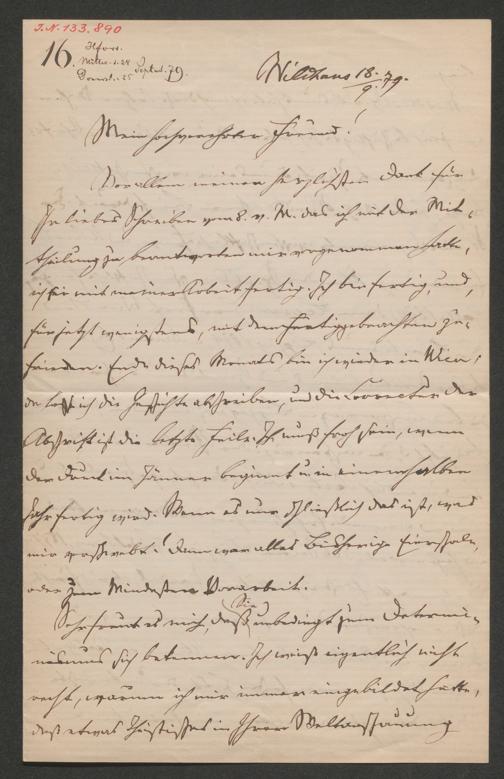 J.N. 133.890
16.
Septbr. 79.
Wildhaus 18./9. 79.
Mein hochverehrter Freund!
Vor allem meinen herzlichsten Dank für
Ihr liebes Schreiben vom 8. v. M. das ich mit der Mit-
theilung zu beantworten mir vorgenommen hatte,
ich sei mit meiner Arbeit fertig. Ich bin fertig, und,
für jetzt wenigstens, mit dem Fertiggebrachten zu-
frieden. Ende dieses Monats bin ich wieder in Wien;
da lass ich die Geschichte abschreiben, und die Correctur der
Abschrift ist die letzte Feile. Ich muß froh sein, wenn
der Druck im Jänner beginnt u. in einem halben
Jahr fertig wird. Wenn es nur schließlich das ist, was
mir vorschwebt! Dann war alles Bisherige
oder zum Mindesten Vorarbeit.
Sehr freut es mich, daß Sie unbedingt zum Determi-
nismus sich bekennen. Ich weiß eigentlich nicht
recht, warum ich mir immer eingebildet hatte,
daß etwas Theistisches in Ihrer Weltanschauung